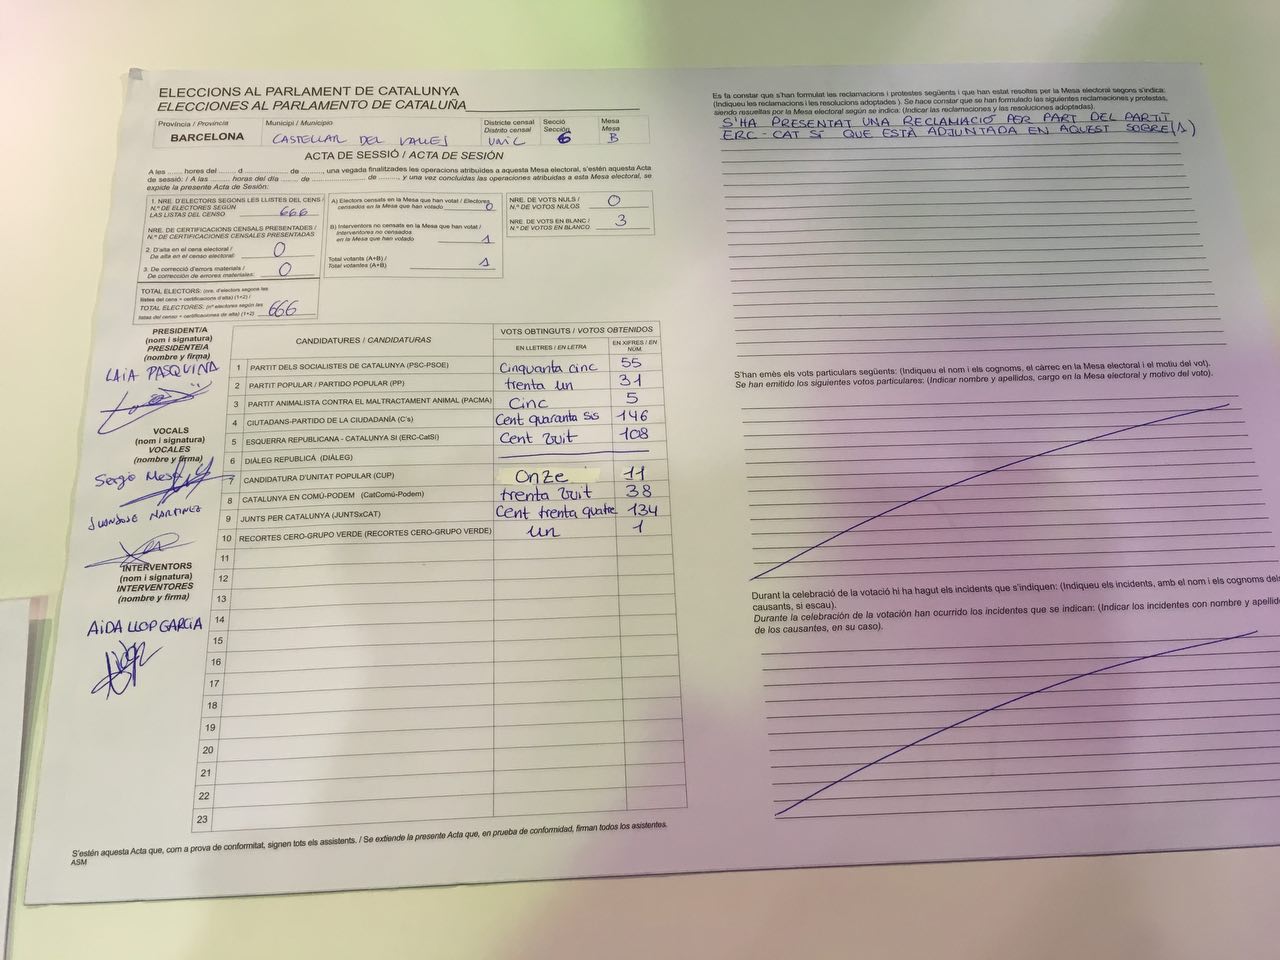 ELECCIONS AL PARLAMENT DE CATALUNYA
ELECCIONES AL PARLAMENTO DE CATALUÑA
Província / Provincia
BARCELONA
Municipi / Municipio
CASTELLAR DEL VALLES
Districte censal
Distrito censal
UNIC
Secció
Sección
6
Mesa
Mesa
B
ACTA DE SESSIÓ / ACTA DE SESIÓN
A les ...... hores del ...... d ............ de ........, una vegada finalitzades les operacions atribuïdes a aquesta Mesa electoral, s'estén aquesta Acta
de sessió: / A las ...... horas del día ...... de ............ de ........, y una vez concluidas las operaciones atribuidas a esta Mesa electoral, se
expide la presente Acta de Sesión:
1. NRE. D'ELECTORS SEGONS LES LLISTES DEL CENS /
N.º DE ELECTORES SEGÚN
LAS LISTAS DEL CENSO 666
NRE. DE CERTIFICACIONS CENSALS PRESENTADES /
N.º DE CERTIFICACIONES CENSALES PRESENTADAS
2. D'alta en el cens electoral /
De alta en el censo electoral: 0
3. De correcció d'errors materials /
De corrección de errores materiales: 0
TOTAL ELECTORS: (nre. d'electors segons les
llistes del cens + certificacions d'alta) (1+2) /
TOTAL ELECTORES: (nº electores según las
listas del censo + certificaciones de alta) (1+2) 666
A) Electors censats en la Mesa que han votat / Electores
censados en la Mesa que han votado 0
B) Interventors no censats en la Mesa que han votat /
Interventores no censados
en la Mesa que han votado 1
Total votants (A+B) /
Total votantes (A+B) 1
NRE. DE VOTS NULS /
N.º DE VOTOS NULOS 0
NRE. DE VOTS EN BLANC /
N.º DE VOTOS EN BLANCO 3
PRESIDENT/A
(nom i signatura)
PRESIDENTE/A
(nombre y firma)
LAIA PASQUINA
VOCALS
(nom i signatura)
VOCALES
(nombre y firma)
Sergio Mesa
JUANJOSE MARTINEZ
INTERVENTORS
(nom i signatura)
INTERVENTORES
(nombre y firma)
AIDA LLOP GARCIA
CANDIDATURES / CANDIDATURAS
VOTS OBTINGUTS / VOTOS OBTENIDOS
EN LLETRES / EN LETRA
EN XIFRES / EN NÚM.
1 PARTIT DELS SOCIALISTES DE CATALUNYA (PSC-PSOE) Cinquanta cinc 55
2 PARTIT POPULAR / PARTIDO POPULAR (PP) trenta un 31
3 PARTIT ANIMALISTA CONTRA EL MALTRACTAMENT ANIMAL (PACMA) Cinc 5
4 CIUTADANS-PARTIDO DE LA CIUDADANÍA (C's) Cent quaranta sis 146
5 ESQUERRA REPUBLICANA - CATALUNYA SI (ERC-CatSí) Cent vuit 108
6 DIÀLEG REPUBLICÀ (DIÀLEG)
7 CANDIDATURA D'UNITAT POPULAR (CUP) onze 11
8 CATALUNYA EN COMÚ-PODEM (CatComú-Podem) trenta vuit 38
9 JUNTS PER CATALUNYA (JUNTSxCAT) Cent trenta quatre 134
10 RECORTES CERO-GRUPO VERDE (RECORTES CERO-GRUPO VERDE) un 1
11
12
13
14
15
16
17
18
19
20
21
22
23
S'estén aquesta Acta que, com a prova de conformitat, signen tots els assistents. / Se extiende la presente Acta que, en prueba de conformidad, firman todos los asistentes.
ASM
Es fa constar que s'han formulat les reclamacions i protestes següents i que han estat resoltes per la Mesa electoral segons s'indica:
(Indiqueu les reclamacions i les resolucions adoptades ). Se hace constar que se han formulado las siguientes reclamaciones y protestas,
siendo resueltas por la Mesa electoral según se indica: (Indicar las reclamaciones y las resoluciones adoptadas).
S'HA PRESENTAT UNA RECLAMACIÓ PER PART DEL PARTIT
ERC-CAT SÍ QUE ESTÀ ADJUNTADA EN AQUEST SOBRE (1)
S'han emès els vots particulars següents: (Indiqueu el nom i els cognoms, el càrrec en la Mesa electoral i el motiu del vot).
Se han emitido los siguientes votos particulares: (Indicar nombre y apellidos, cargo en la Mesa electoral y motivo del voto).
Durant la celebració de la votació hi ha hagut els incidents que s'indiquen: (Indiqueu els incidents, amb el nom i els cognoms dels
causants, si escau).
Durante la celebración de la votación han ocurrido los incidentes que se indican: (Indicar los incidentes con nombre y apellidos
de los causantes, en su caso).